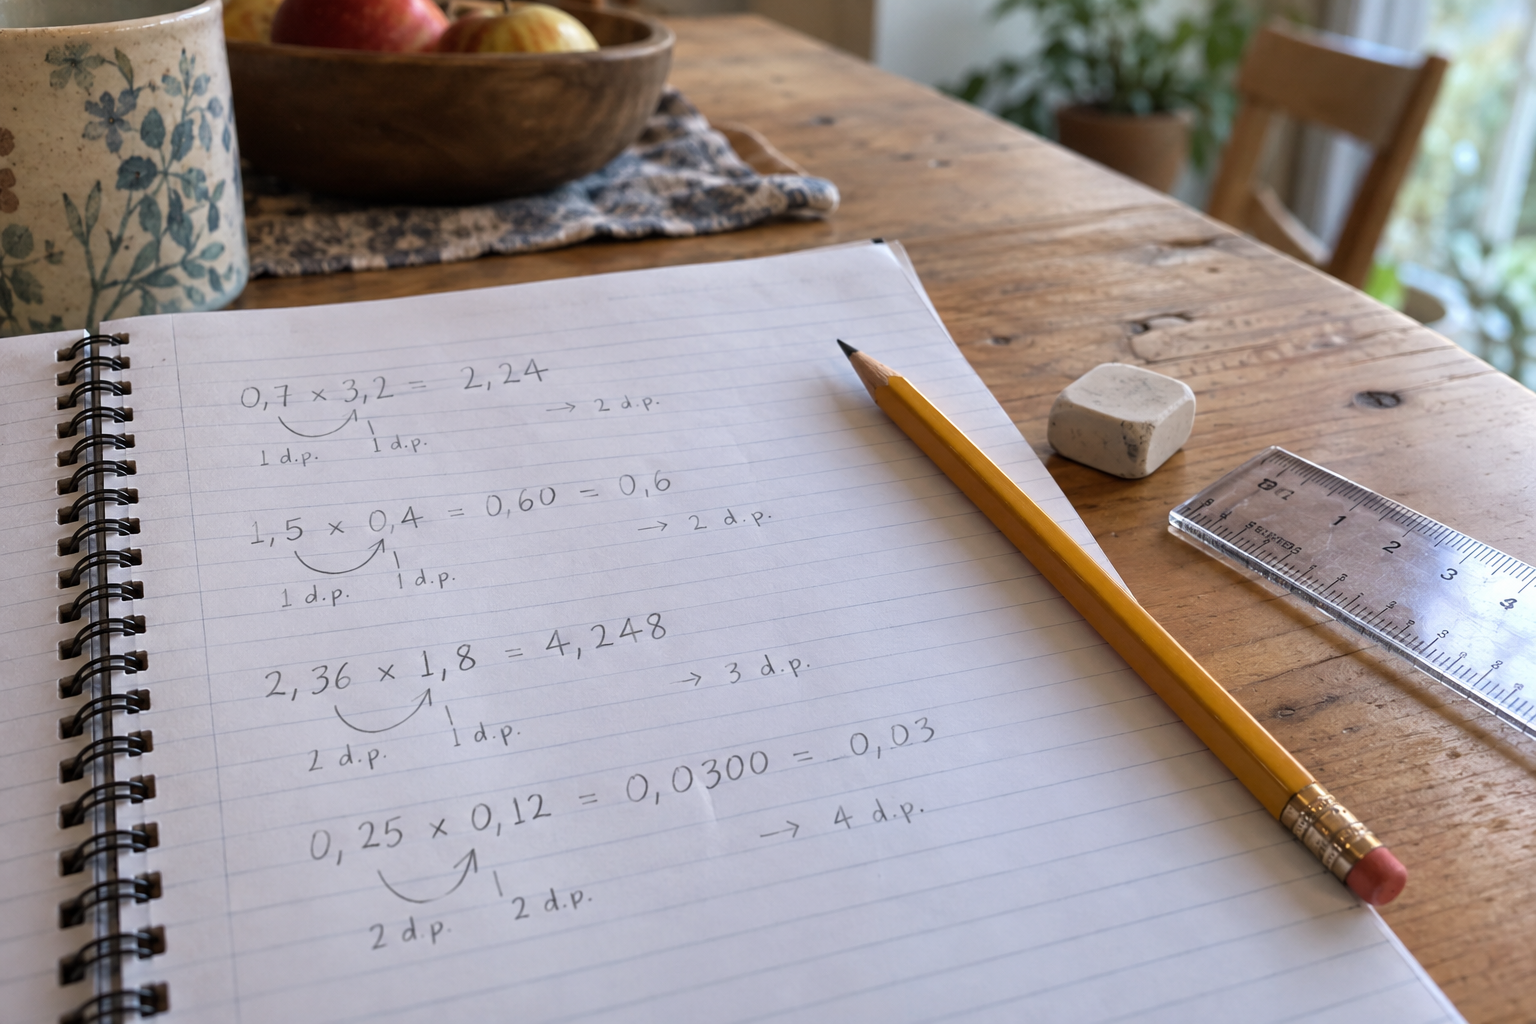 0,7 × 3,2 = 2,24
→ 2 d.p.
1 d.p. 1 d.p.
1,5 × 0,4 = 0,60 = 0,6
→ 2 d.p.
1 d.p. 1 d.p.
2,36 × 1,8 = 4,248
→ 3 d.p.
2 d.p. 1 d.p.
0,25 × 0,12 = 0,0300 = 0,03
→ 4 d.p.
2 d.p. 2 d.p.
1 2 3 4